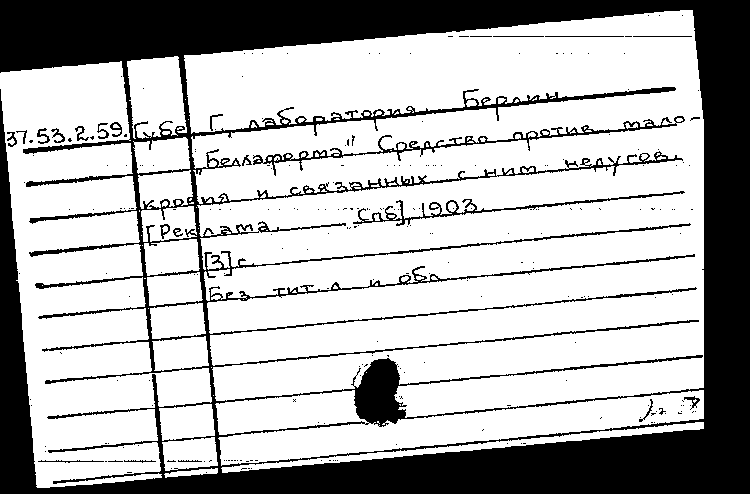 37.53.2.59. Губе, Г., лаборатория. Берлин.
„Беллаформа" Средство против мало-
кровия и связанных с ним недугов.
[Реклама. Спб], 1903.
[3] с.
Без тит. л. и обл.